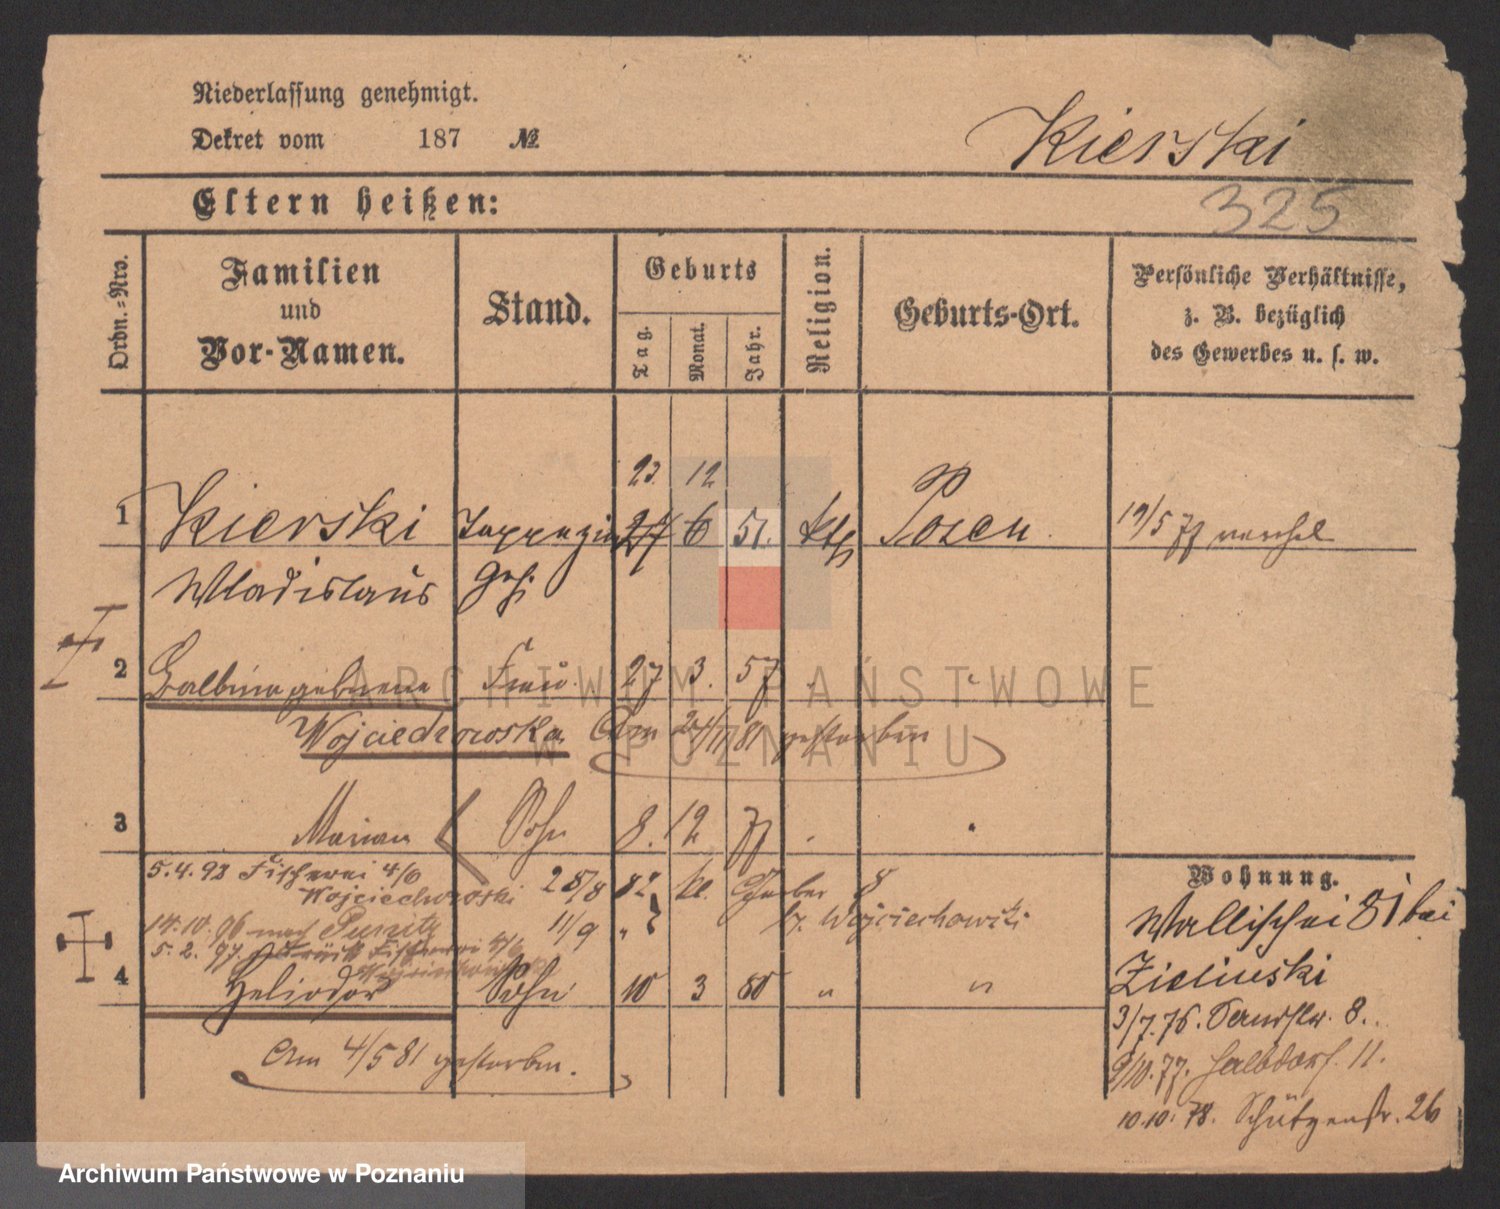 Niederlassung genehmigt.
Dekret vom 187 №
Kierski
325
Eltern heißen:
Ordn.-Nro.
Familien und Vor-Namen.
Stand.
Geburts
Tag.
Monat.
Jahr.
Religion.
Geburts-Ort.
Persönliche Verhältnisse,
z. B. bezüglich
des Gewerbes u. s. w.
23. 12
1 Kierski 24 6 51. kth Posen 19/5 77
Wladislaus
2 Balbina geborene Frau 27 3. 57
Wojciechowska Am 24/11 81 gestorben
3 Marian Sohn 8. 12 77
5.4.93 Fischerei 4/6
Wojciechowski 25/8 82 kl. Gerber 8
14.10.96 nach Punitz 11/9 " b. Wojciechowski
5.2.97. zurück Fischerei 4/6
Wojciechowski
4 Heliodor Sohn 10 3 80 " "
Am 4/5 81 gestorben.
Wohnung.
Wallischei 81 bei
Zielinski
3/7.76. Sandstr. 8.
9/10.77. Halbdorf. 11.
10.10.78. Schützenstr. 26
ARCHIWUM PAŃSTWOWE
W POZNANIU
Archiwum Państwowe w Poznaniu